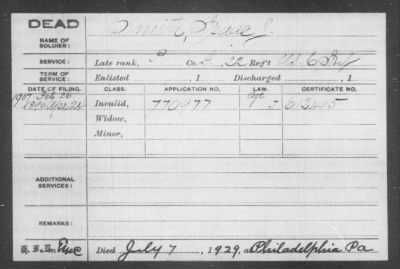 DEAD
NAME OF SOLDIER:
Smith, Isaac J.
SERVICE: Late rank, P Co. A, 22 Reg't U.S. C. Inf
TERM OF SERVICE: Enlisted , 1 Discharged , 1
DATE OF FILING. CLASS. APPLICATION NO. LAW. CERTIFICATE NO.
1907 Feb 26
Invalid, 770977
Widow,
Minor,
ADDITIONAL SERVICES:
REMARKS:
Died July 7, 1929, at Philadelphia Pa